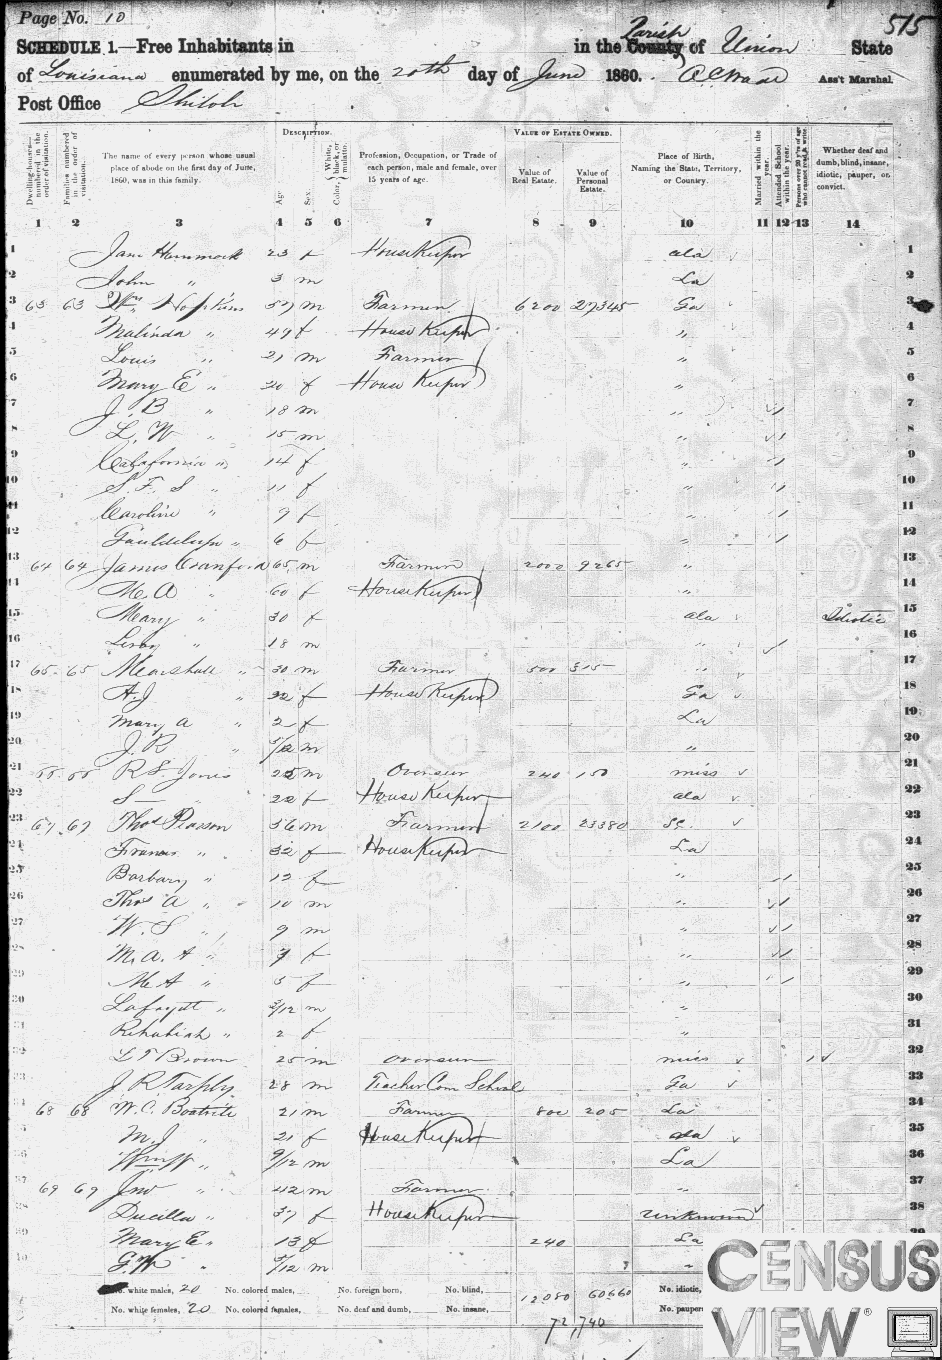 Page No. 10
515
SCHEDULE 1.—Free Inhabitants in in the County Parish of Union State
of Louisiana enumerated by me, on the 20th day of June 1860. A C Wade Ass't Marshal.
Post Office Shiloh
Dwelling-houses—numbered in the order of visitation. Families numbered in the order of visitation. The name of every person whose usual place of abode on the first day of June, 1860, was in this family. Description. Age. Sex. Color, White, black, or mulatto. Profession, Occupation, or Trade of each person, male and female, over 15 years of age. Value of Estate Owned. Value of Real Estate. Value of Personal Estate. Place of Birth, Naming the State, Territory, or Country. Married within the year. Attended School within the year. Persons over 20 y'rs of age who cannot read & write. Whether deaf and dumb, blind, insane, idiotic, pauper, or convict.
1 2 3 4 5 6 7 8 9 10 11 12 13 14
1 Jane Hammock 23 f HouseKeeper ala 1
2 John " 3 m La 2
3 63 63 Wm Hopkins 57 m Farmer 6200 27345 Ga 3
4 Malinda " 49 f House Keeper " 4
5 Louis " 21 m Farmer " 5
6 Mary E " 20 f House Keeper " 6
7 J. B " 18 m " 1 7
8 L. W " 15 m " 1 8
9 Calafornia " 14 f " 1 9
10 S. F. S " 11 f " 1 10
11 Caroline " 9 f " 1 11
12 " 6 f " 1 12
13 64 64 James Cranford 65 m Farmer 2000 9265 " 13
14 M. A " 60 f HouseKeeper " 14
15 Mary " 30 f ala Idiotic 15
16 Leroy " 18 m " 1 16
17 65 65 Marshall " 30 m Farmer 500 315 " 17
18 A. J " 32 f House Keeper Ga 18
19 Mary A " 2 f La 19
20 J. R " /12 m " 20
21 66 66 R S. Jones 25 m Overseer 240 150 miss 21
22 S— " 22 f House Keeper ala 22
23 67 67 Thos Pearson 56 m Farmer 2100 23380 SC. 23
24 Frances " 32 f HouseKeeper La 24
25 Barbary " 12 f " 1 25
26 Thos A " 10 m " 1 26
27 W. S " 9 m " 1 27
28 M. A. A " 7 f " 1 28
29 M A " 5 f " 1 29
30 Lafayett " /12 m " 30
31 " 2 f " 31
32 L T Brown 25 m overseer miss 1 32
33 J R Tarply 28 m Teacher Com School Ga 33
34 68 68 W. C. Boatrite 21 m Farmer 800 205 La 34
M. J " 21 f HouseKeeper ala 35
36 Wm W " 9/12 m La 36
37 69 69 Jno " 42 m Farmer " 37
38 Ducilla " 37 f HouseKeeper unknown 38
Mary E " 13 f 240 La
G. W " /12 m "
No. white males, 20 No. colored males, No. foreign born, No. blind, 12080 60660 No. idiotic,
No. white females, 20 No. colored females, No. deaf and dumb, No. insane, No. pauper
72,740
CENSUS
VIEW®